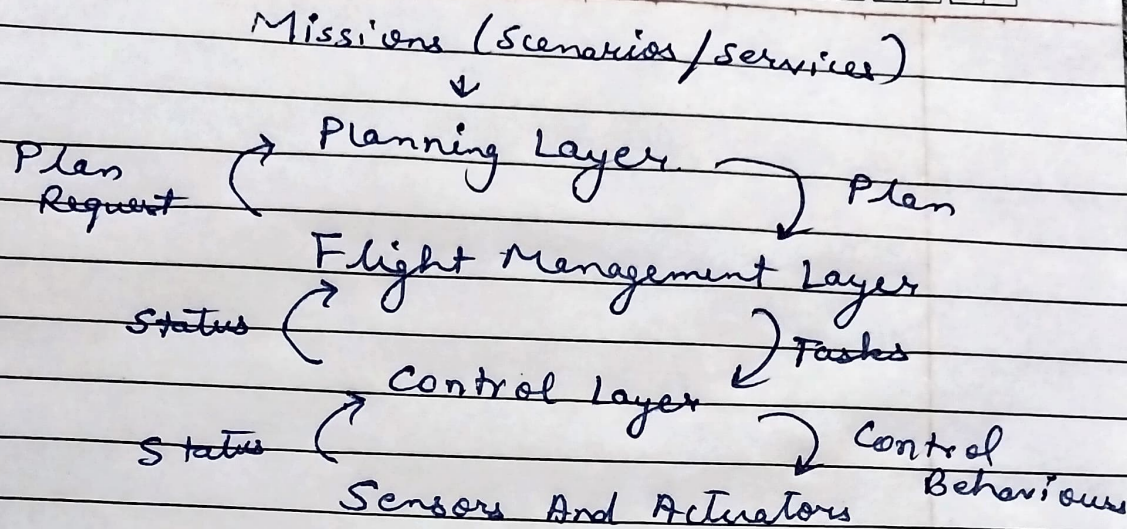 Missions (Scenarios/Services)
Planning Layer
Plan
Request
Plan
Flight Management Layer
Status
Tasks
Control Layer
Status
Control
Behaviours
Sensors And Actuators